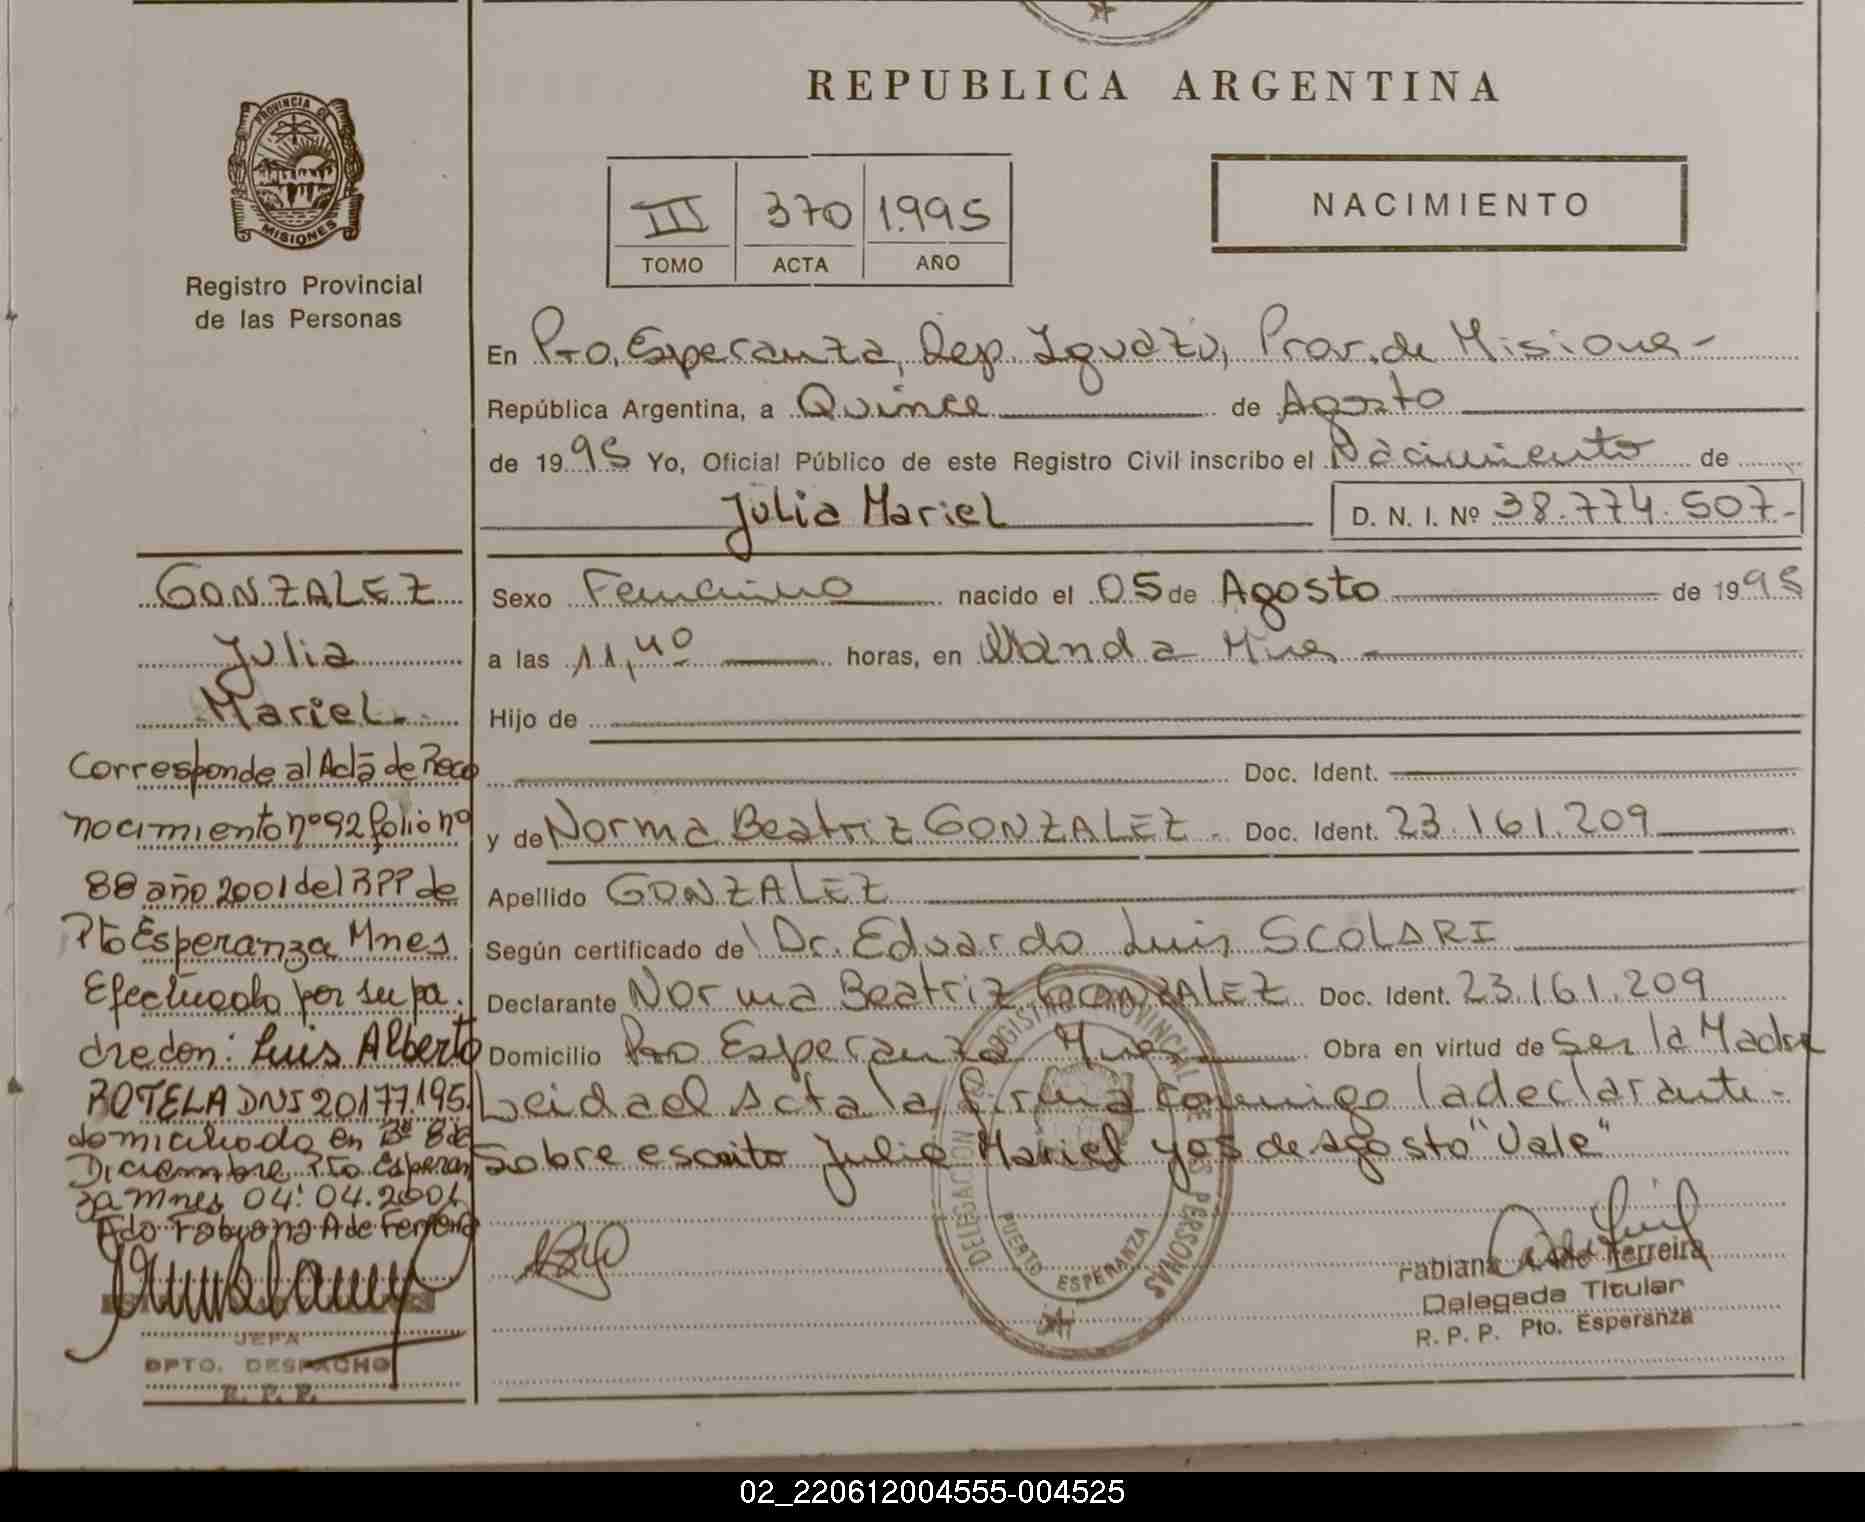 REPUBLICA ARGENTINA
PROVINCIA DE
MISIONES
Registro Provincial
de las Personas
III 370 1.995
TOMO ACTA AÑO
NACIMIENTO
En Pto. Esperanza, Dep. Iguazú, Prov. de Misiones-
República Argentina, a Quince de Agosto
de 1995 Yo, Oficial Público de este Registro Civil inscribo el Nacimiento de
Julia Mariel D. N. I. Nº 38.774.507.-
Sexo Femenino nacido el 05 de Agosto de 1995
a las 11,40 horas, en Wanda Mnes
Hijo de
Doc. Ident.
y de Norma Beatriz GONZALEZ. Doc. Ident. 23.161.209
Apellido GONZALEZ
Según certificado de Dr. Eduardo Luis SCOLARI
Declarante Norma Beatriz GONZALEZ Doc. Ident. 23.161.209
Domicilio Pto Esperanza Mnes Obra en virtud de Ser la Madre
Leida el Acta la firma conmigo la declarante.-
Sobre escrito Julia Mariel y 05 de Agosto "Vale"
GONZALEZ
Julia
Mariel.
Corresponde al Acta de Reco
nocimiento nº 92 folio nº
88 año 2001 del RPP de
Pto Esperanza Mnes
Efectuado por su pa.
dre don: Luis Alberto
ROTELA DNI 20177.195.
domiciliado en Bº 8 de
Diciembre Pto Esperan
za Mnes 04.04.2001
Fdo Fabiana A de Ferreira
JEFA
DPTO. DESPACHO
R. P. P.
DELEGACION REGISTRO PROVINCIAL DE LAS PERSONAS
PUERTO ESPERANZA
Fabiana A. de Ferreira
Delegada Titular
R. P. P. Pto. Esperanza
02_220612004555-004525